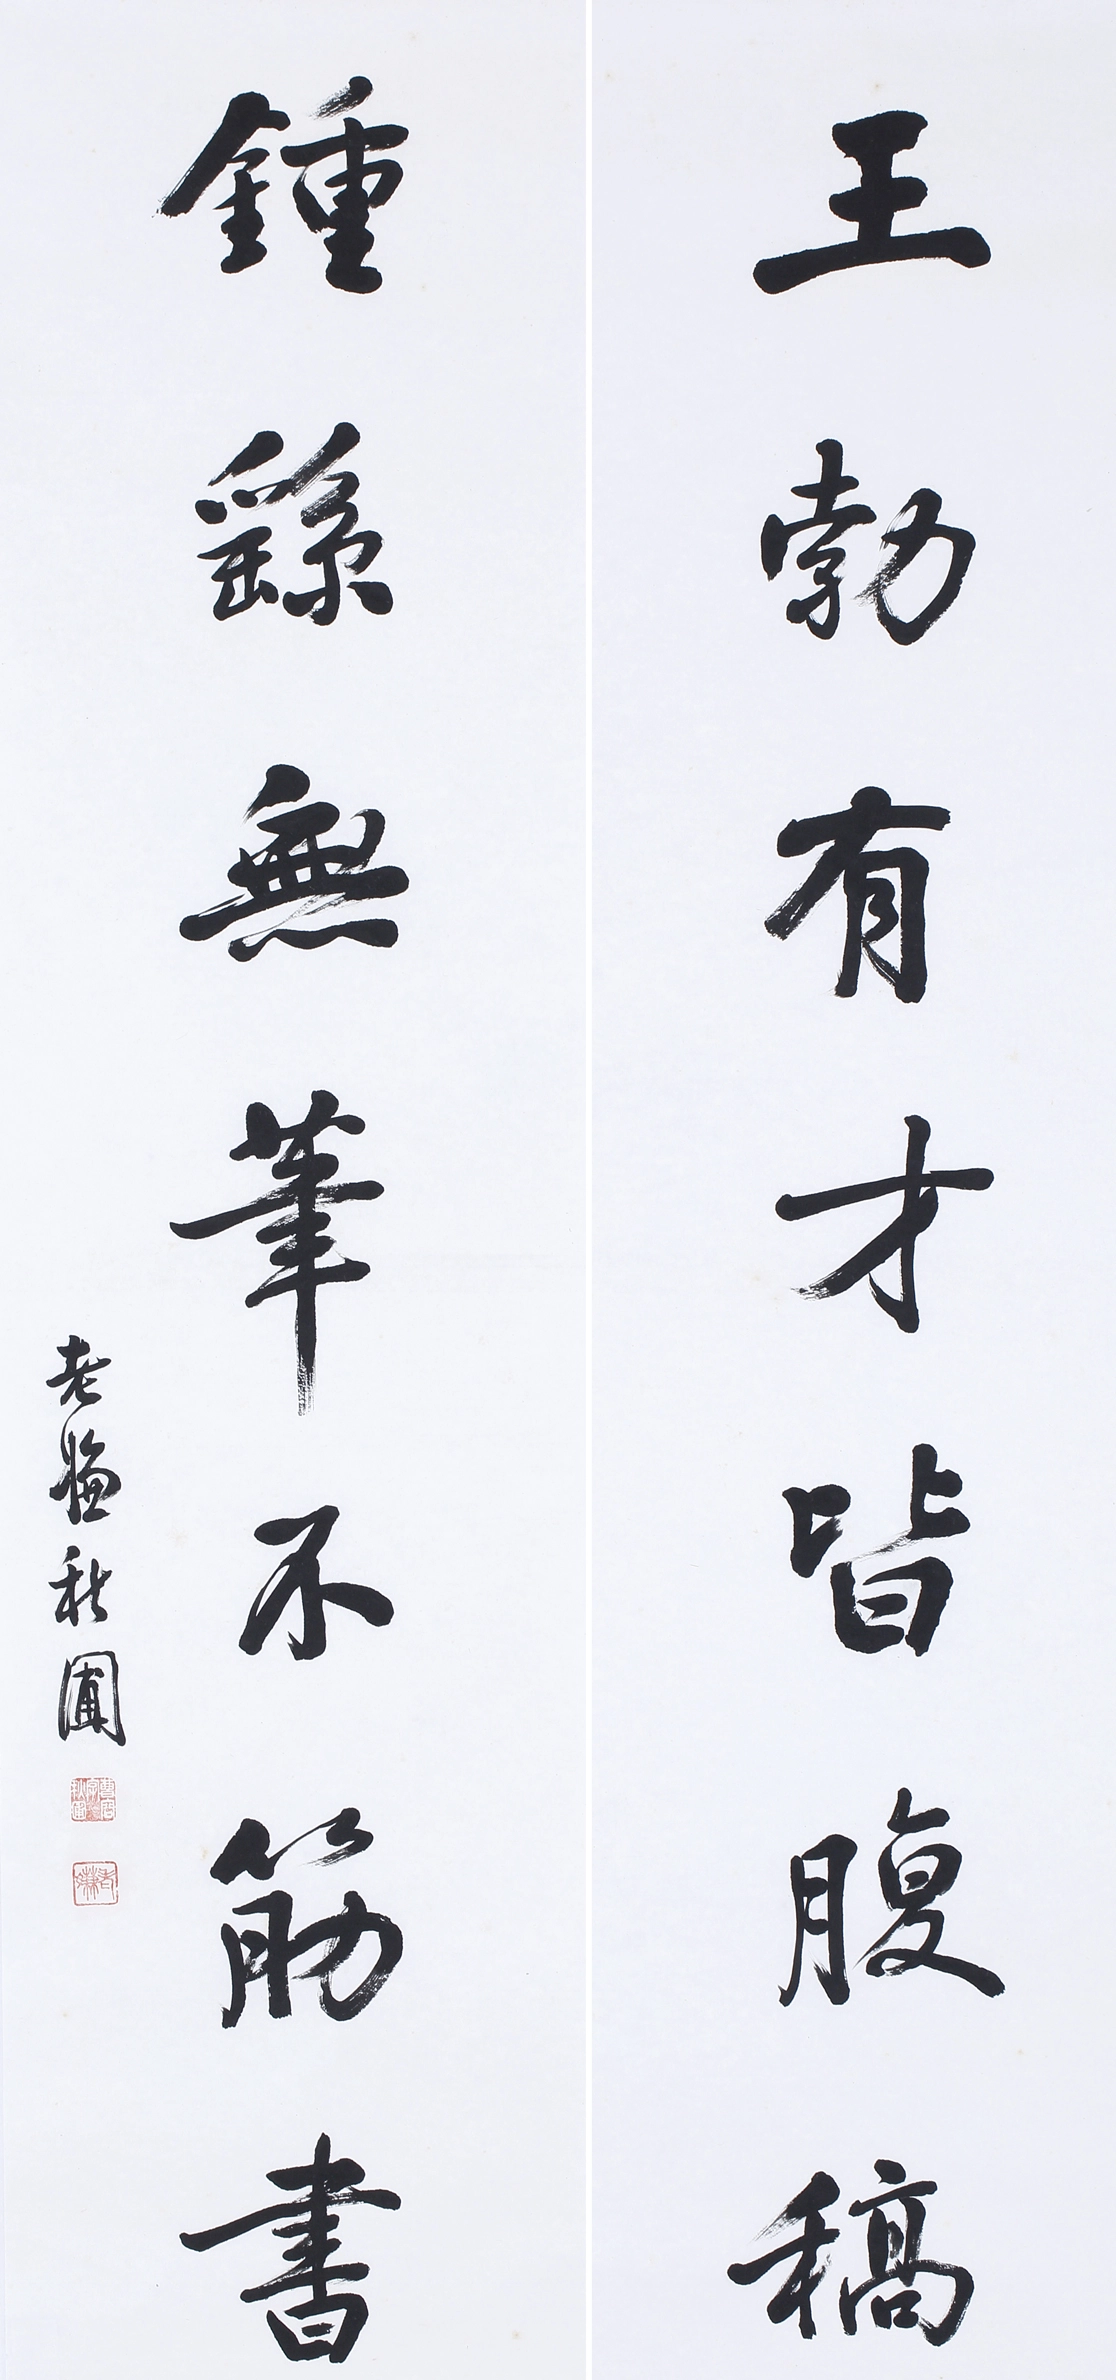 王勃有才皆腹稿
鍾繇無筆不筋書
老嫌秋圃